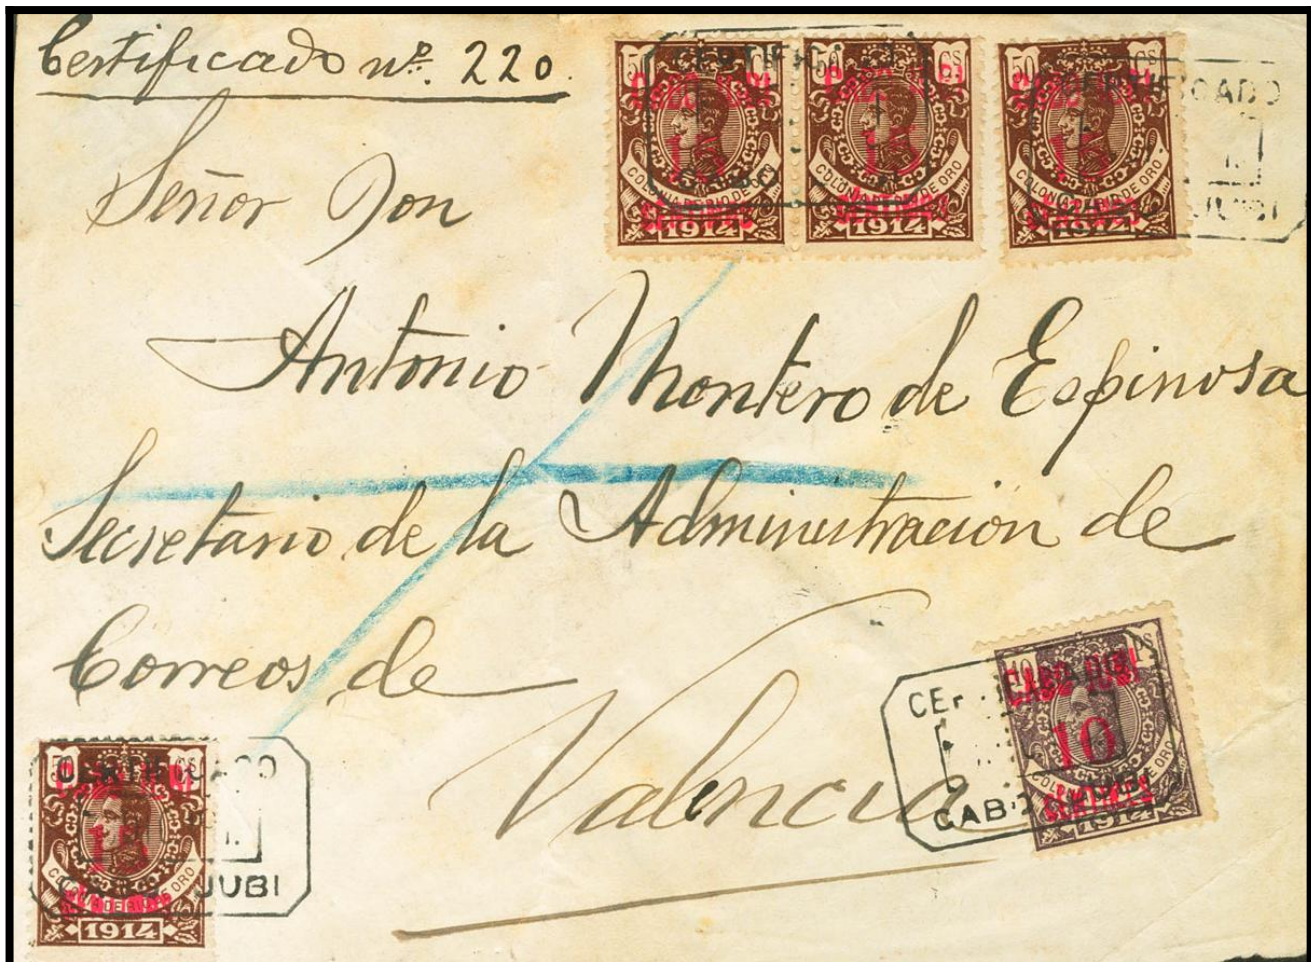 Certificado nº. 220
50 cs
CABO JUBI
CENTIMOS
COLONIA DE RIO DE ORO
1914
50 cs
CABO JUBI
CENTIMOS
COLONIA DE RIO DE ORO
1914
50
CABO JUBI
CENTIMOS
COLONIA DE RIO DE ORO
1914
CERTIFICADO
CERTIFICADO
JUBI
Señor Don
Antonio Montero de Espinosa
Secretario de la Administración de
Correos de
Valencia
10 PS
CABO JUBI
10
CENTIMOS
COLONIA DE RIO DE ORO
1914
CABO JUBI
50 cs
CABO JUBI
CENTIMOS
COLONIA DE RIO DE ORO
1914
CERTIFICADO
CABO JUBI